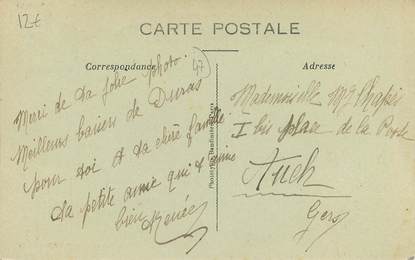 12€
CARTE POSTALE
Correspondance
47
Adresse
Merci de ta jolie photo.
Meilleurs baisers de Duras
pour toi et ta chère famille
Ta petite amie qui t'aime
bien Renée
Mademoiselle
I bis place de la Poste
Auch
Gers